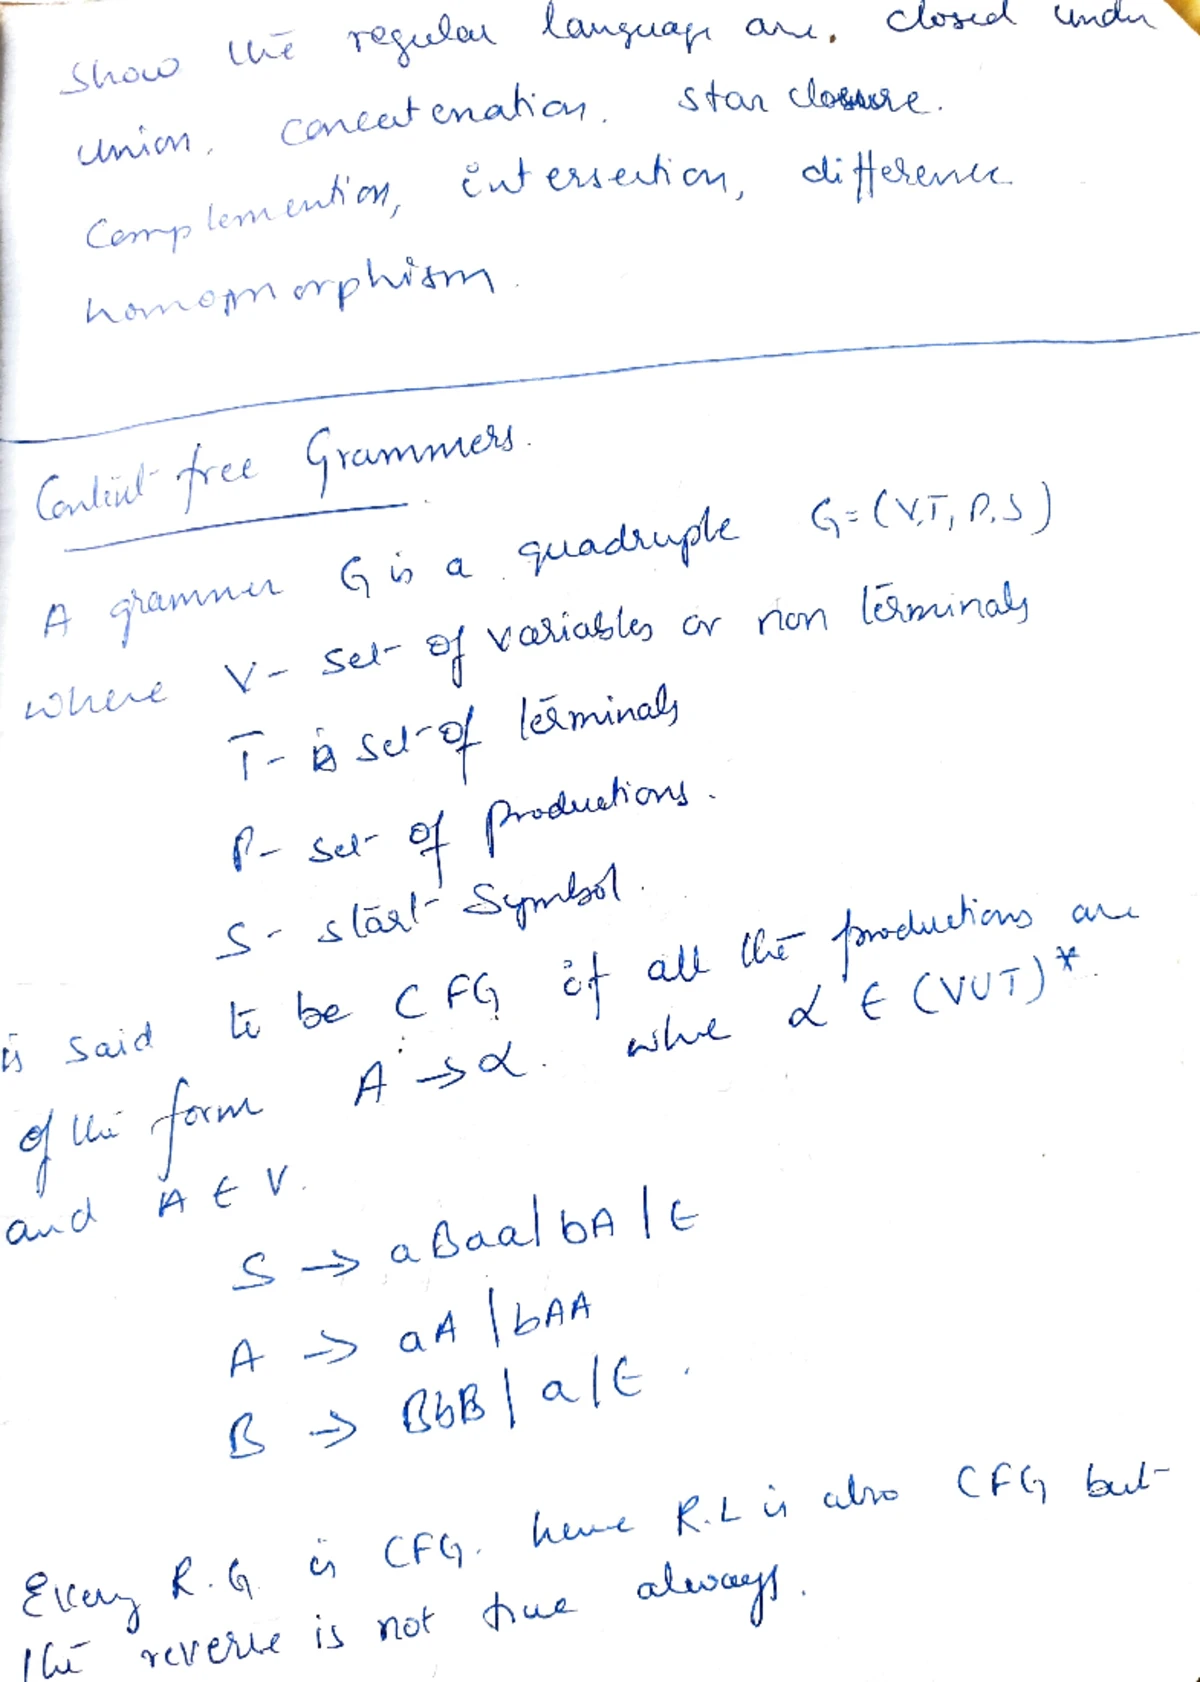 Show the regular language are. closed under
union, concatenation. star closure.
Complemention, intersection, difference
homomorphism.
Context free Grammers.
A grammer G is a quadruple G=(V,T,P,S)
where V- set of variables or non terminals
T- is set of terminals
P- set of productions.
S- start symbol.
is said to be CFG if all the productions are
of the form A → α. where α ∈ (VUT)*.
and A ∈ V.
S → aBaa|bA|ϵ
A → aA|bAA
B → BbB|a|ϵ.
Every R.G. is CFG. hence R.L is also CFG but
the reverse is not true always.